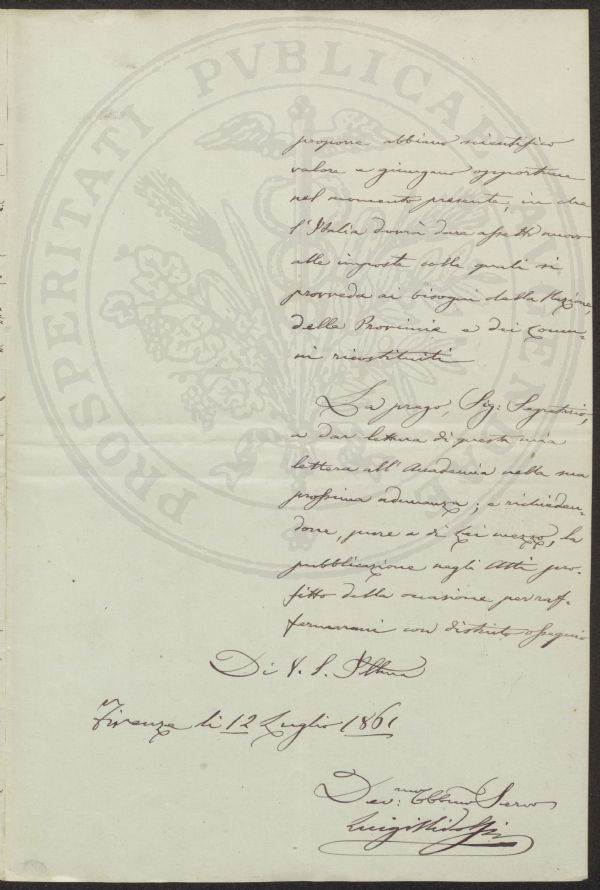 PROSPERITATI PVBLICAE AVGENDAE
propone abbiano scientifico
valore e giungano opportune
nel momento presente, in che
l'Italia dovrà dare assetto nuovo
alle imposte colle quali si
provveda ai bisogni della Nazione,
delle Provincie e dei Comu-
ni ricostituiti
La prego, Sig: Segretario,
a dar lettura di questa mia
lettera all'Accademia nella sua
prossima adunanza; e richieden-
done, pure a di Lei mezzo, la
pubblicazione negli Atti pro-
fitto della occasione per raf-
fermarmi con distinto ossequio
Di V. S. Illma
Firenze li 12 Luglio 1861
Dev:mo Obblmo Servo
Luigi Ridolfi